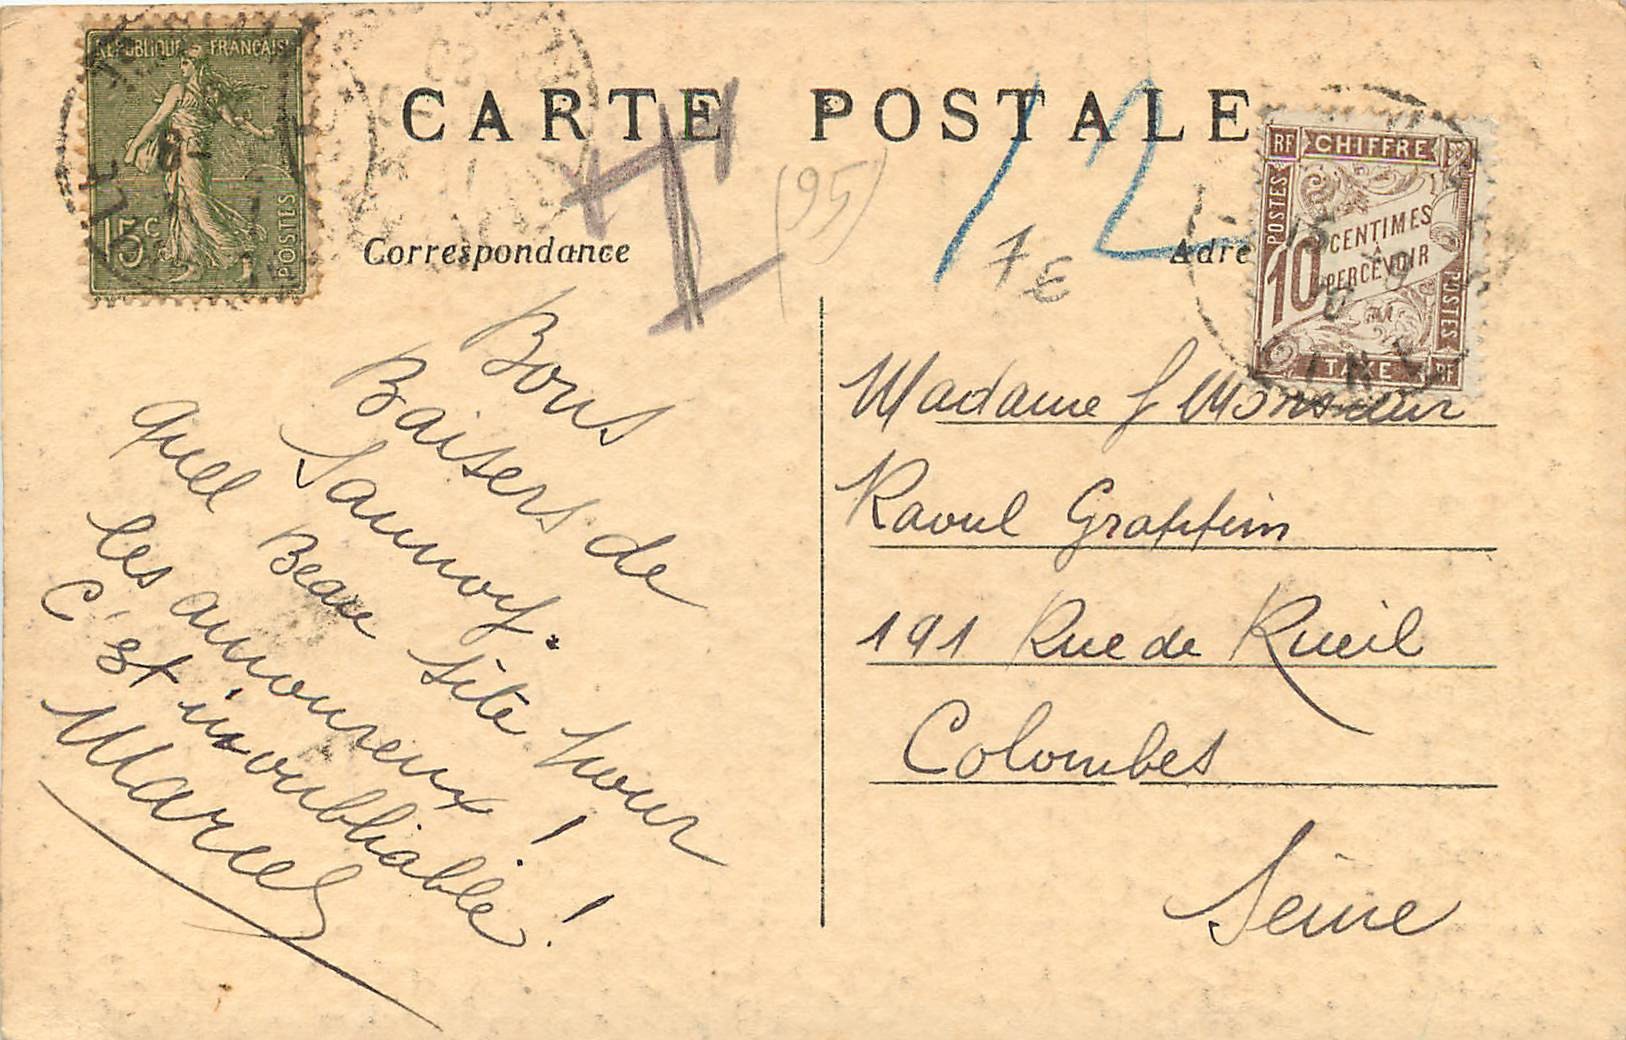 RÉPUBLIQUE FRANÇAISE
15c
POSTES
CARTE POSTALE
(95)
12
7 E
Correspondance
Adre
RF CHIFFRE
POSTES
10 CENTIMES
À
PERCEVOIR
POSTES
TAXE RF
Bons
Baisers de
Sannoy.
Quel Beau site pour
les amoureux !
C'est inoubliable !
Marcel
Madame & Monsieur
Raoul Grappin
191 Rue de Rueil
Colombes
Seine